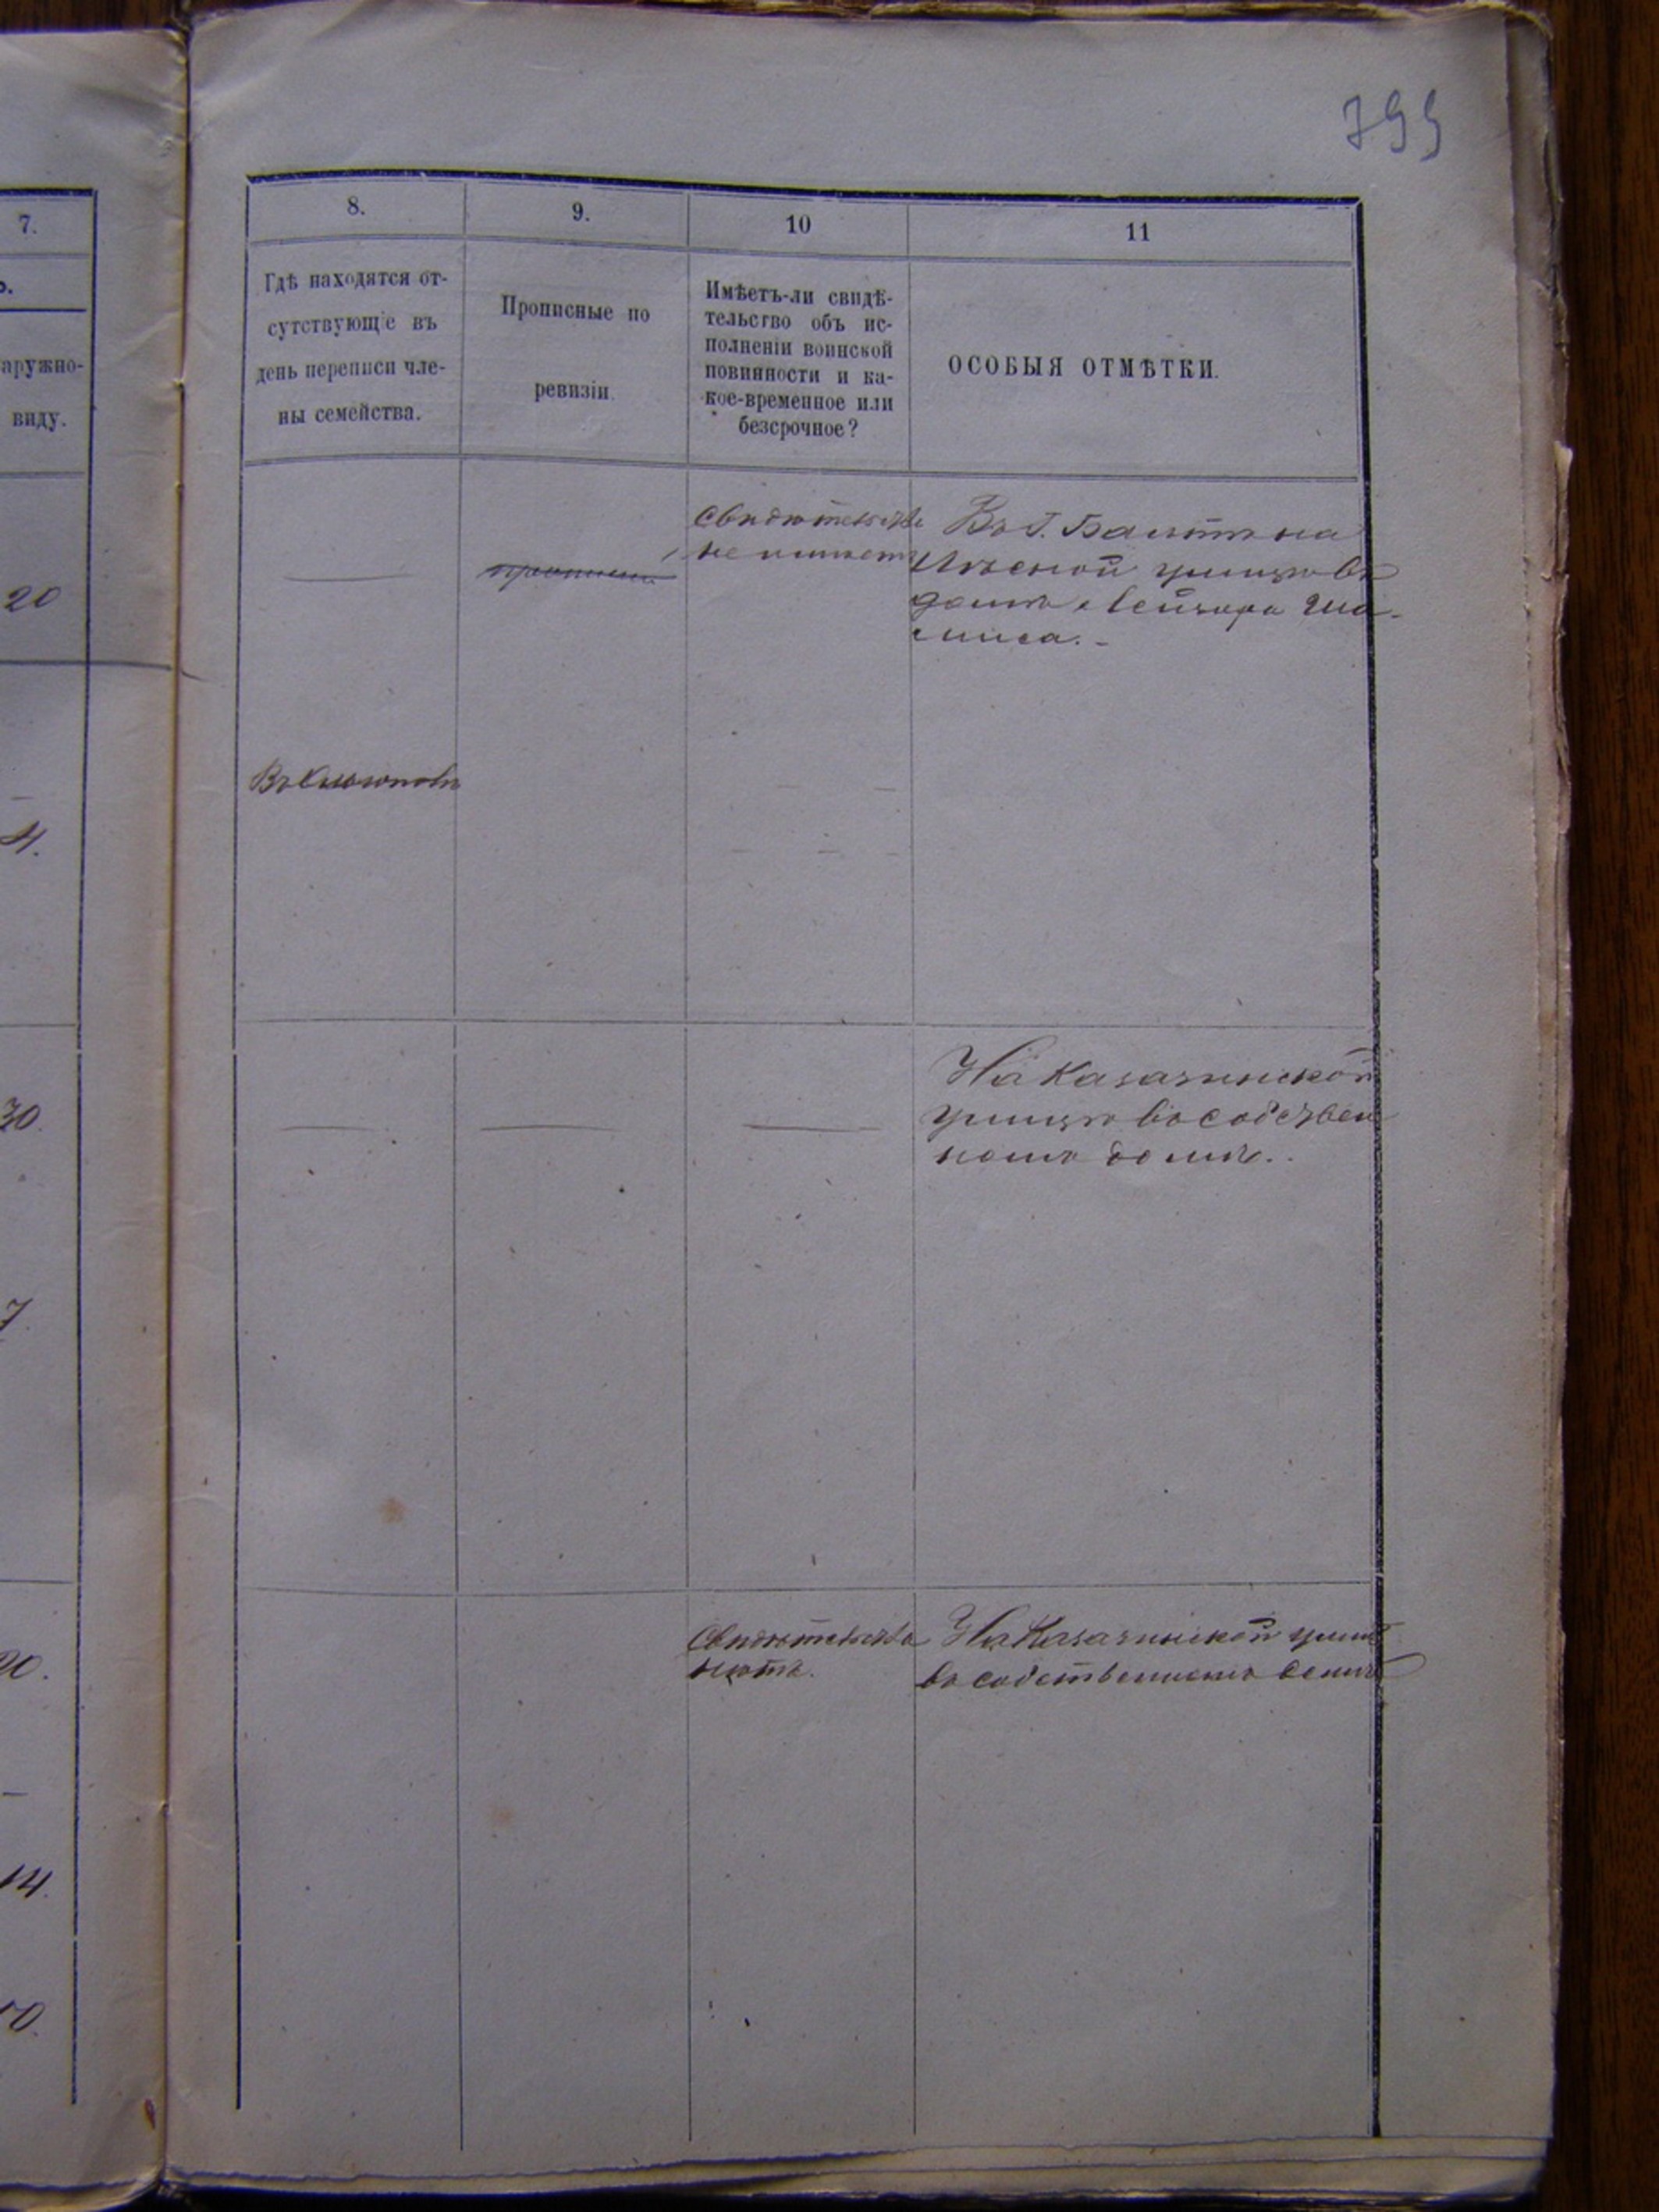 799
7.
8.
9.
10
11
ъ.
аружно-
виду.
Гдѣ находятся от-
сутствующіе въ
день переписи чле-
ны семейства.
Прописные по
ревизіи.
Имѣетъ-ли свидѣ-
тельство объ ис-
полненіи воинской
повинности и ка-
кое-временное или
безсрочное?
ОСОБЫЯ ОТМѢТКИ.
20
Свидѣтельства
не имѣетъ
Въ Г. Балтѣ на
улицѣ въ
домѣ
Въ
4.
30.
На Казачинской
улицѣ въ собствен
номъ домѣ.
7
20.
Свидѣтельства
нѣтъ.
На Казачинской улиц
въ собственномъ домѣ
14.
10.